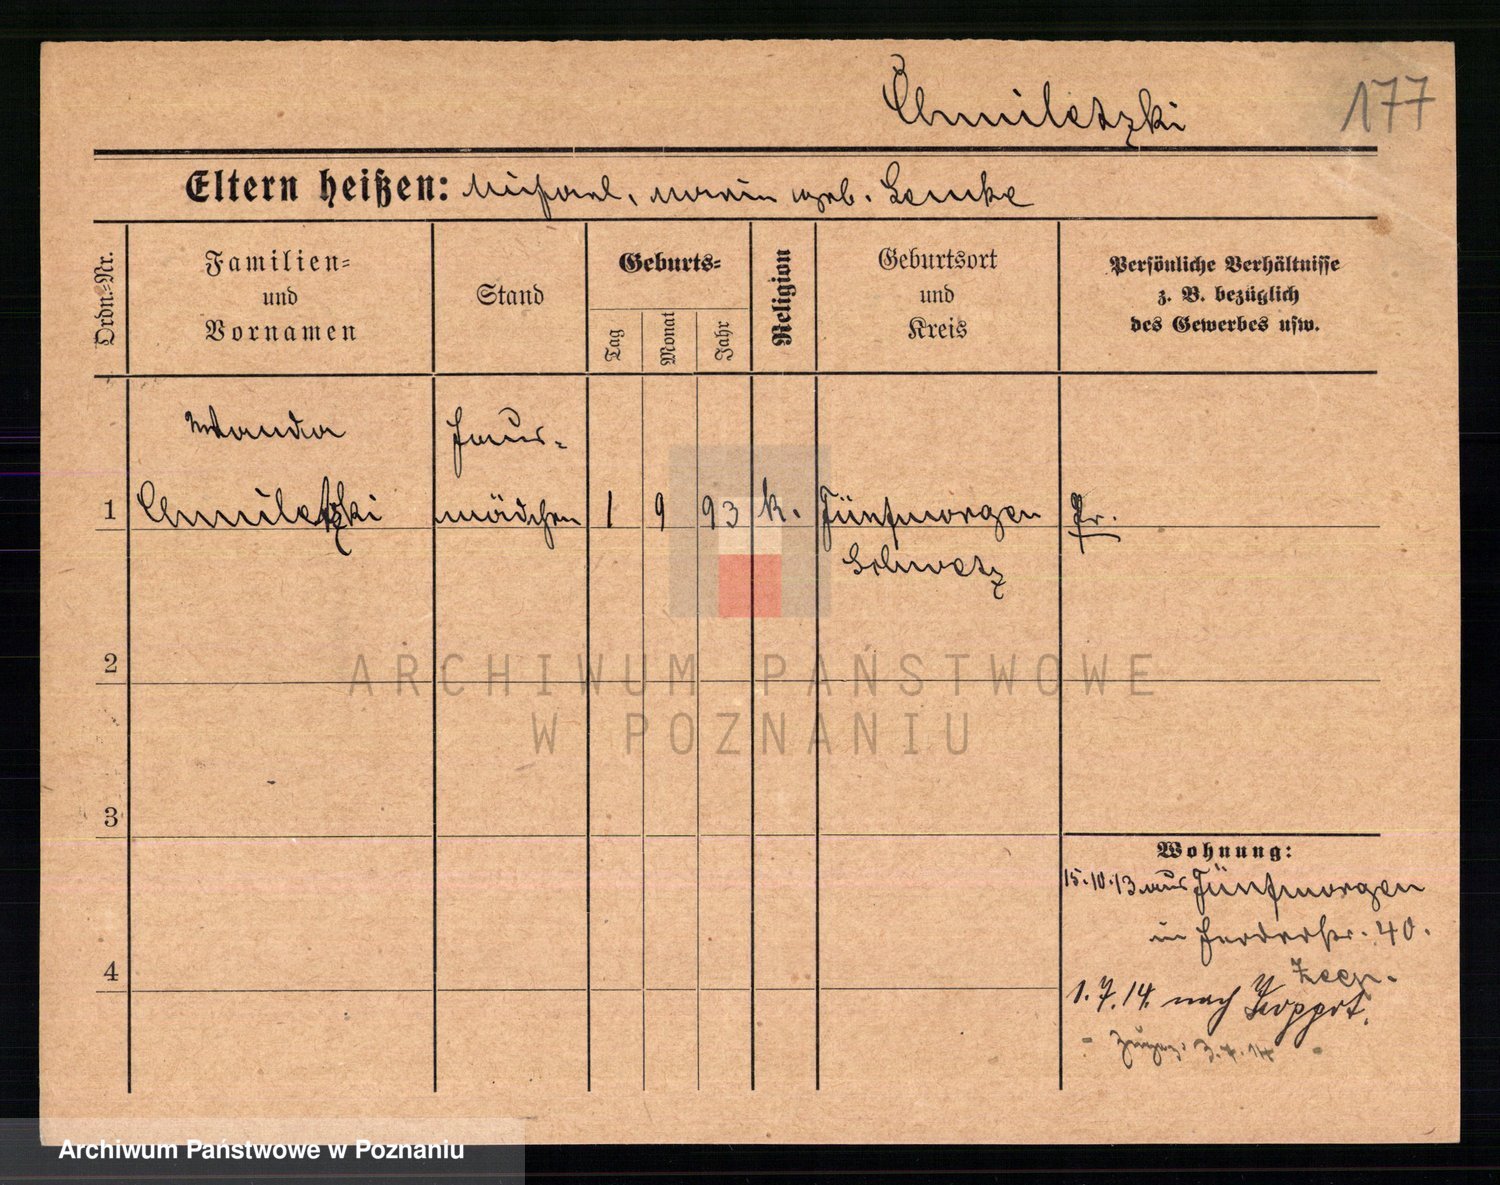 Chmiletzki
177
Eltern heißen: Michael, Marie geb. Lemke
Ordn.-Nr.
Familien-
und
Vornamen
Stand
Geburts-
Tag
Monat
Jahr
Religion
Geburtsort
und
Kreis
Persönliche Verhältnisse
z. B. bezüglich
des Gewerbes usw.
Wanda
Haus-
1 Chmiletzki mädchen 1 9 93 k. Fünfmorgen Pr.
Schwetz
2
ARCHIWUM PAŃSTWOWE
W POZNANIU
3
Wohnung:
15.10.13 aus Fünfmorgen
in Herderstr. 40.
4
1.7.14. nach Zoppot.
3.7.14
Archiwum Państwowe w Poznaniu